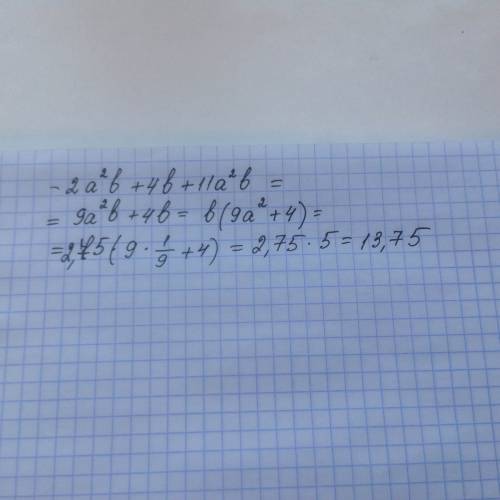 - 2a²b + 4b + 11a²b =
= 9a²b + 4b = b(9a² + 4) =
= 2,75(9 · 1/9 + 4) = 2,75 · 5 = 13,75